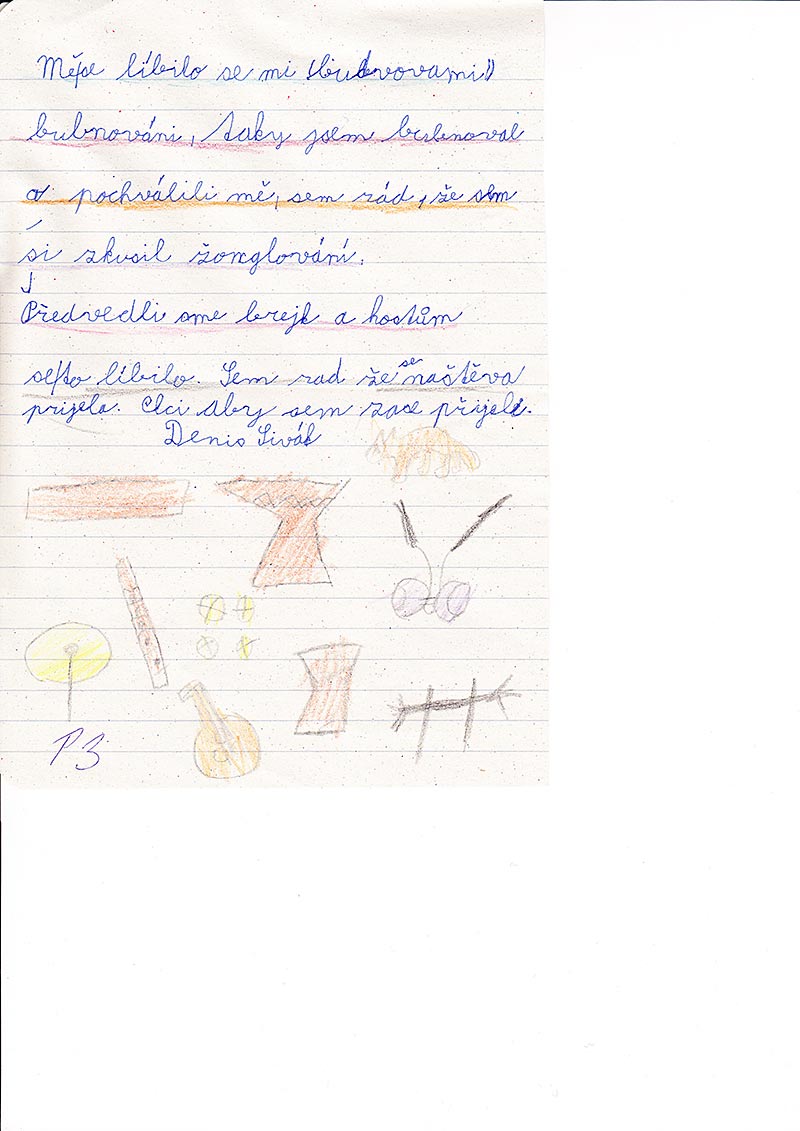 Měse líbilo se mi (bubnovami)
bubnováni, taky jsem bubnoval
a pochválili mě, sem rád, že sem
si zkusil žonglování.
Předvedli sme brejk a hostům
se to líbilo. Sem rad že se naštěva
prijela. Chci aby sem zase přijeli.
Denis Sivák
P3